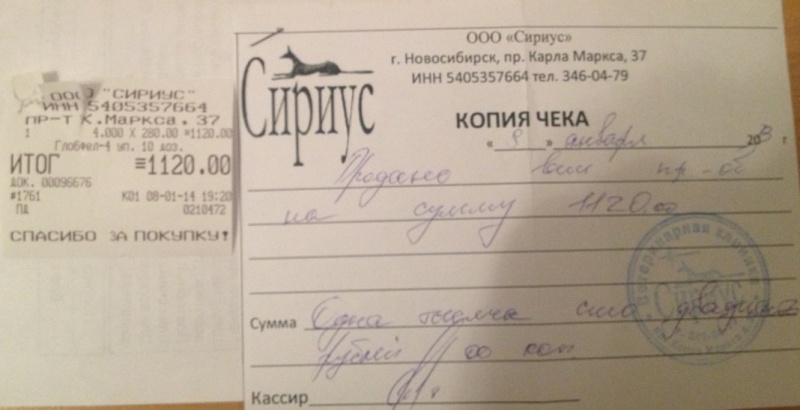 ООО "СИРИУС"
ИНН 5405357664
ПР-Т К.Маркса. 37
1 4.000 X 280.00 =1120.00
Глобфел-4 уп. 10 доз.
ИТОГ =1120.00
ДОК. 00096676
#1761 К01 08-01-14 19:20
ПД 0210472
СПАСИБО ЗА ПОКУПКУ!
ООО «Сириус»
г. Новосибирск, пр. Карла Маркса, 37
ИНН 5405357664 тел. 346-04-79
Сириус
КОПИЯ ЧЕКА
« 8 » января 20 г
Продано вет пр-об
на сумму 1120.00
Ветеринарная клиника
Сириус
Сумма Одна тысяча сто двадцать
рублей 00 коп
Кассир